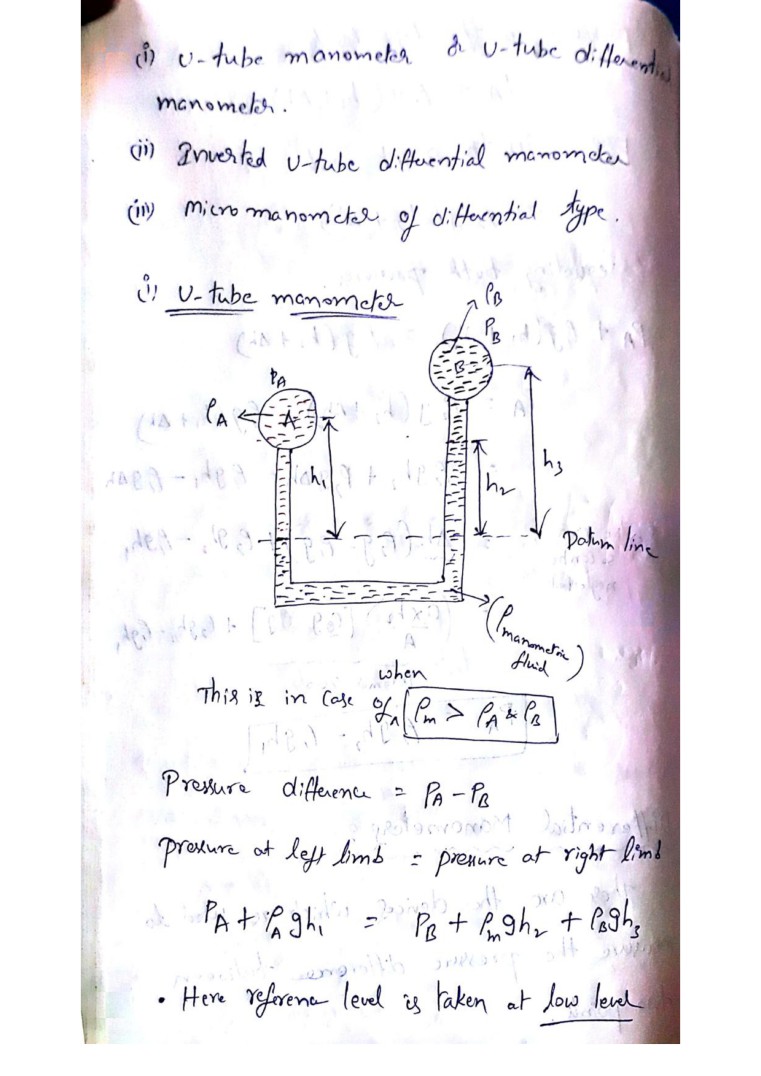 (i) U-tube manometer & U-tube differential
manometer.
(ii) Inverted U-tube differential manometer
(iii) Micro manometer of differential type.
i) U-tube manometer
ρB
PB
B
PA
ρA
A
h1
h2
h3
Datum line
(ρmanometric fluid)
This is in case of when ρm > ρA & ρB
Pressure difference = PA - PB
pressure at left limb = pressure at right limb
PA + ρA gh1 = PB + ρm gh2 + ρB gh3
• Here reference level is taken at low level